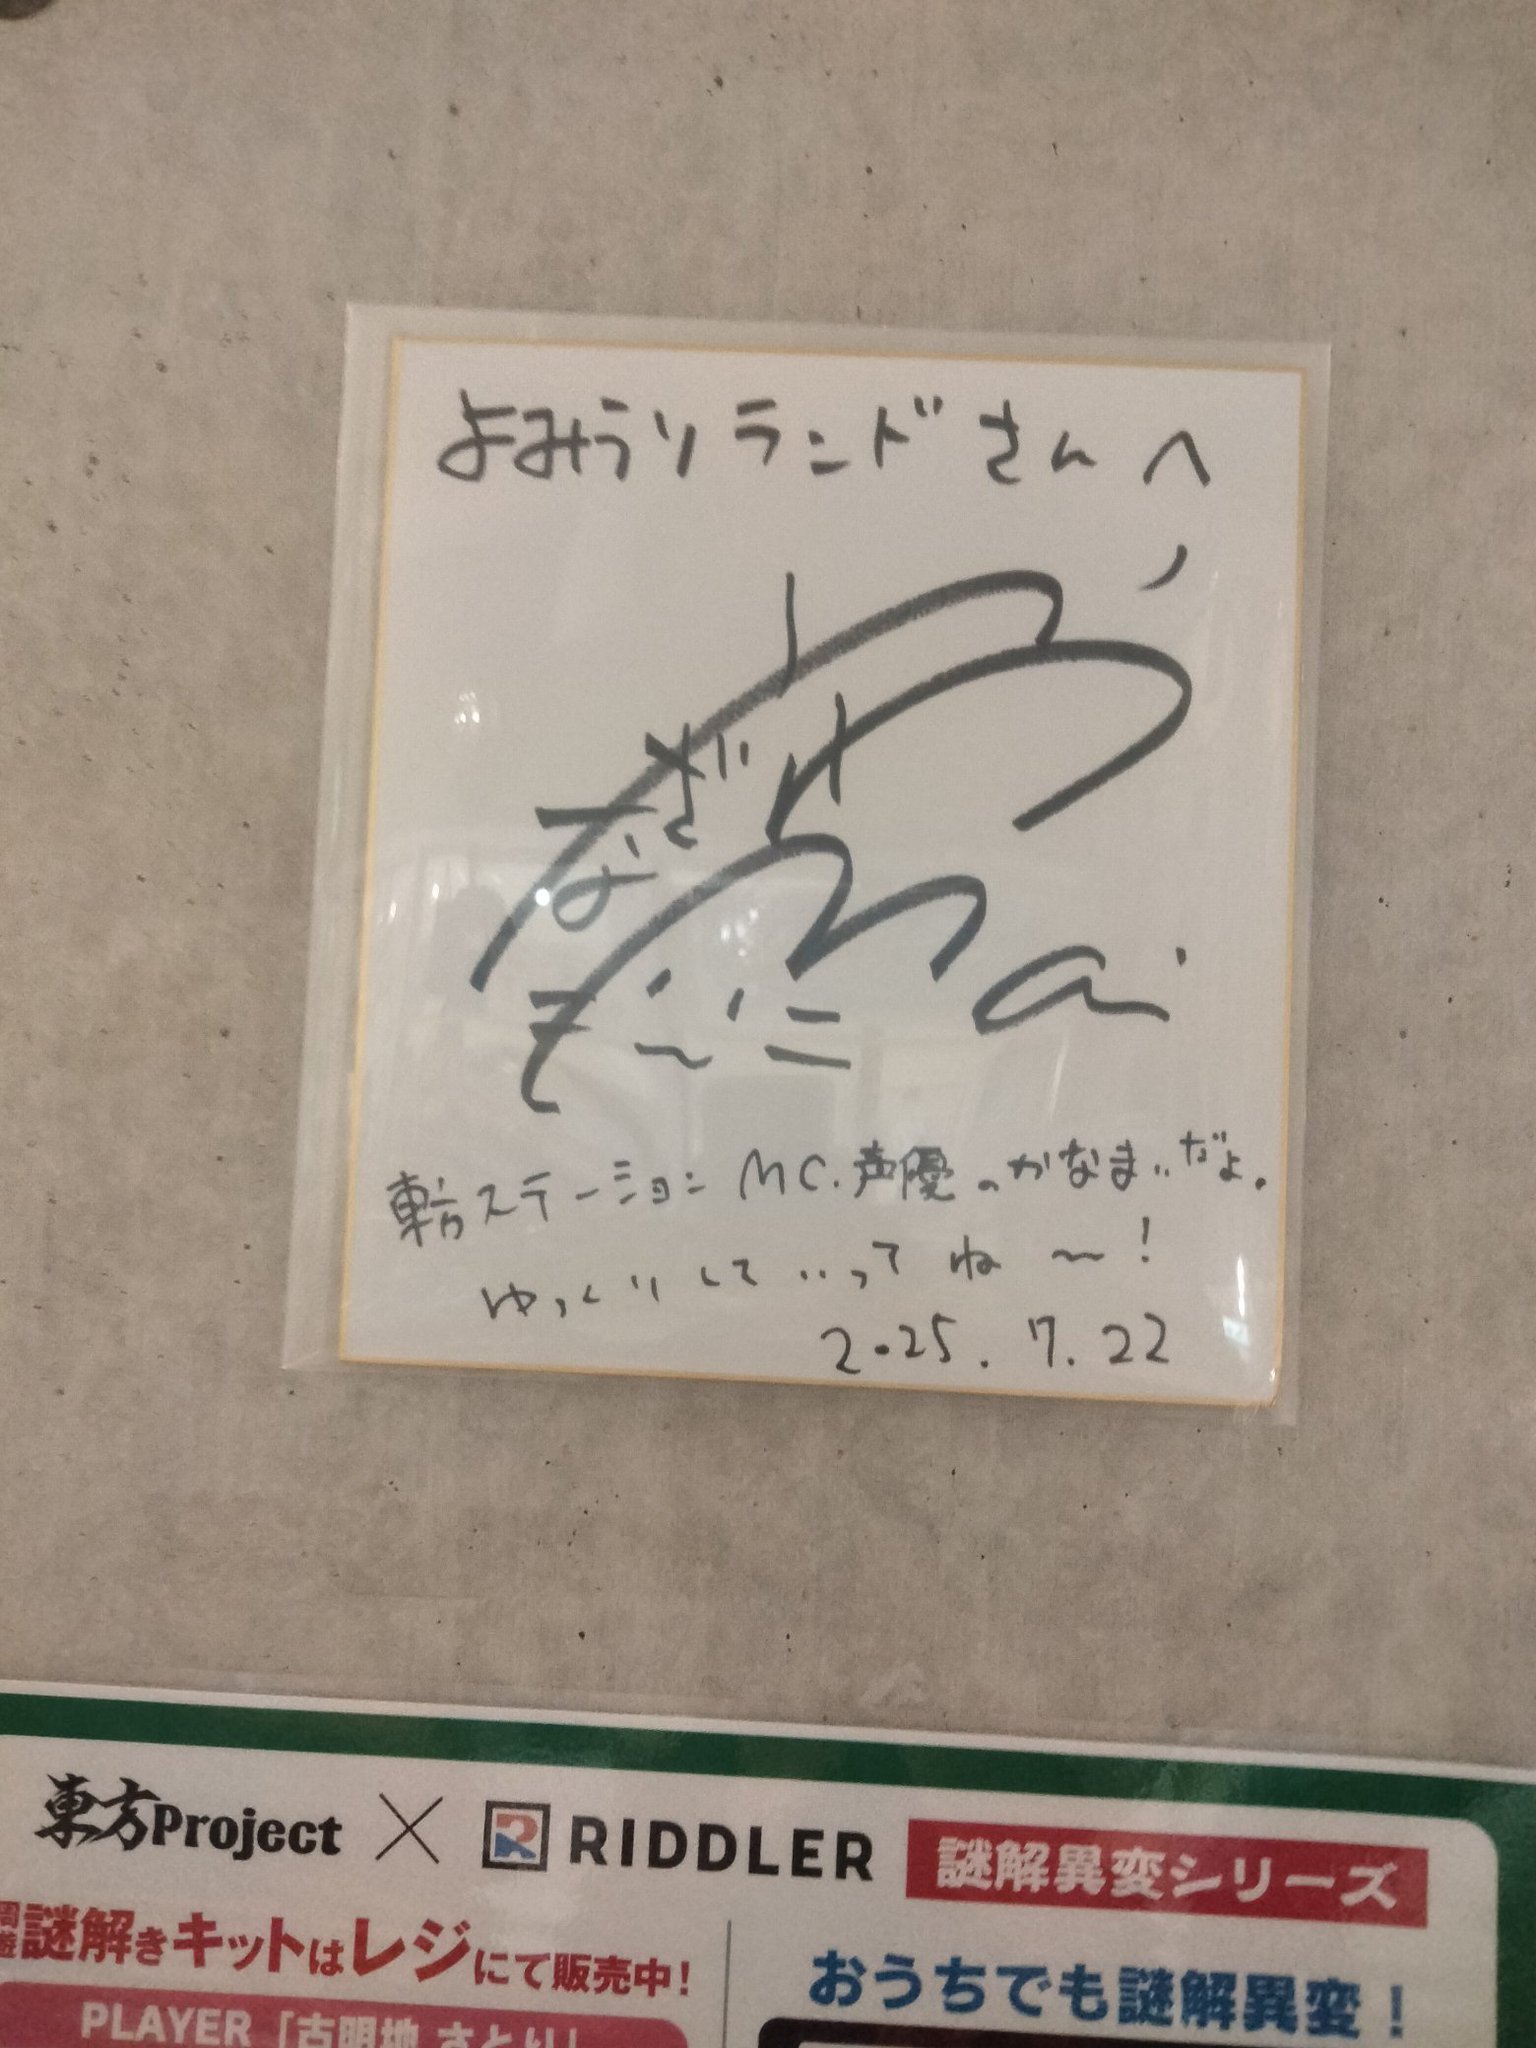 よみうりランドさんへ
東方ステーションMC.声優のかなまいだよ。
ゆっくりしていってね～!
2025.7.22
東方Project × RIDDLER 謎解異変シリーズ
周遊謎解きキットはレジにて販売中!
おうちでも謎解異変!
PLAYER「古明地 さとり」